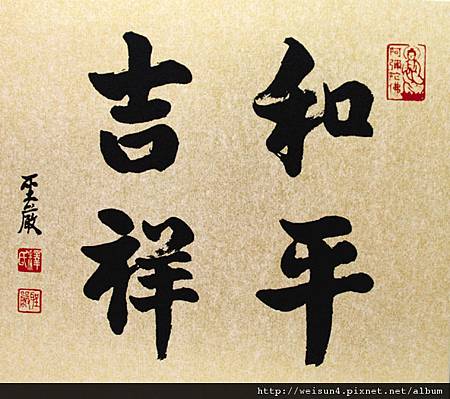 和平
吉祥
阿彌陀佛
聖嚴
http://weisun4.pixnet.net/album